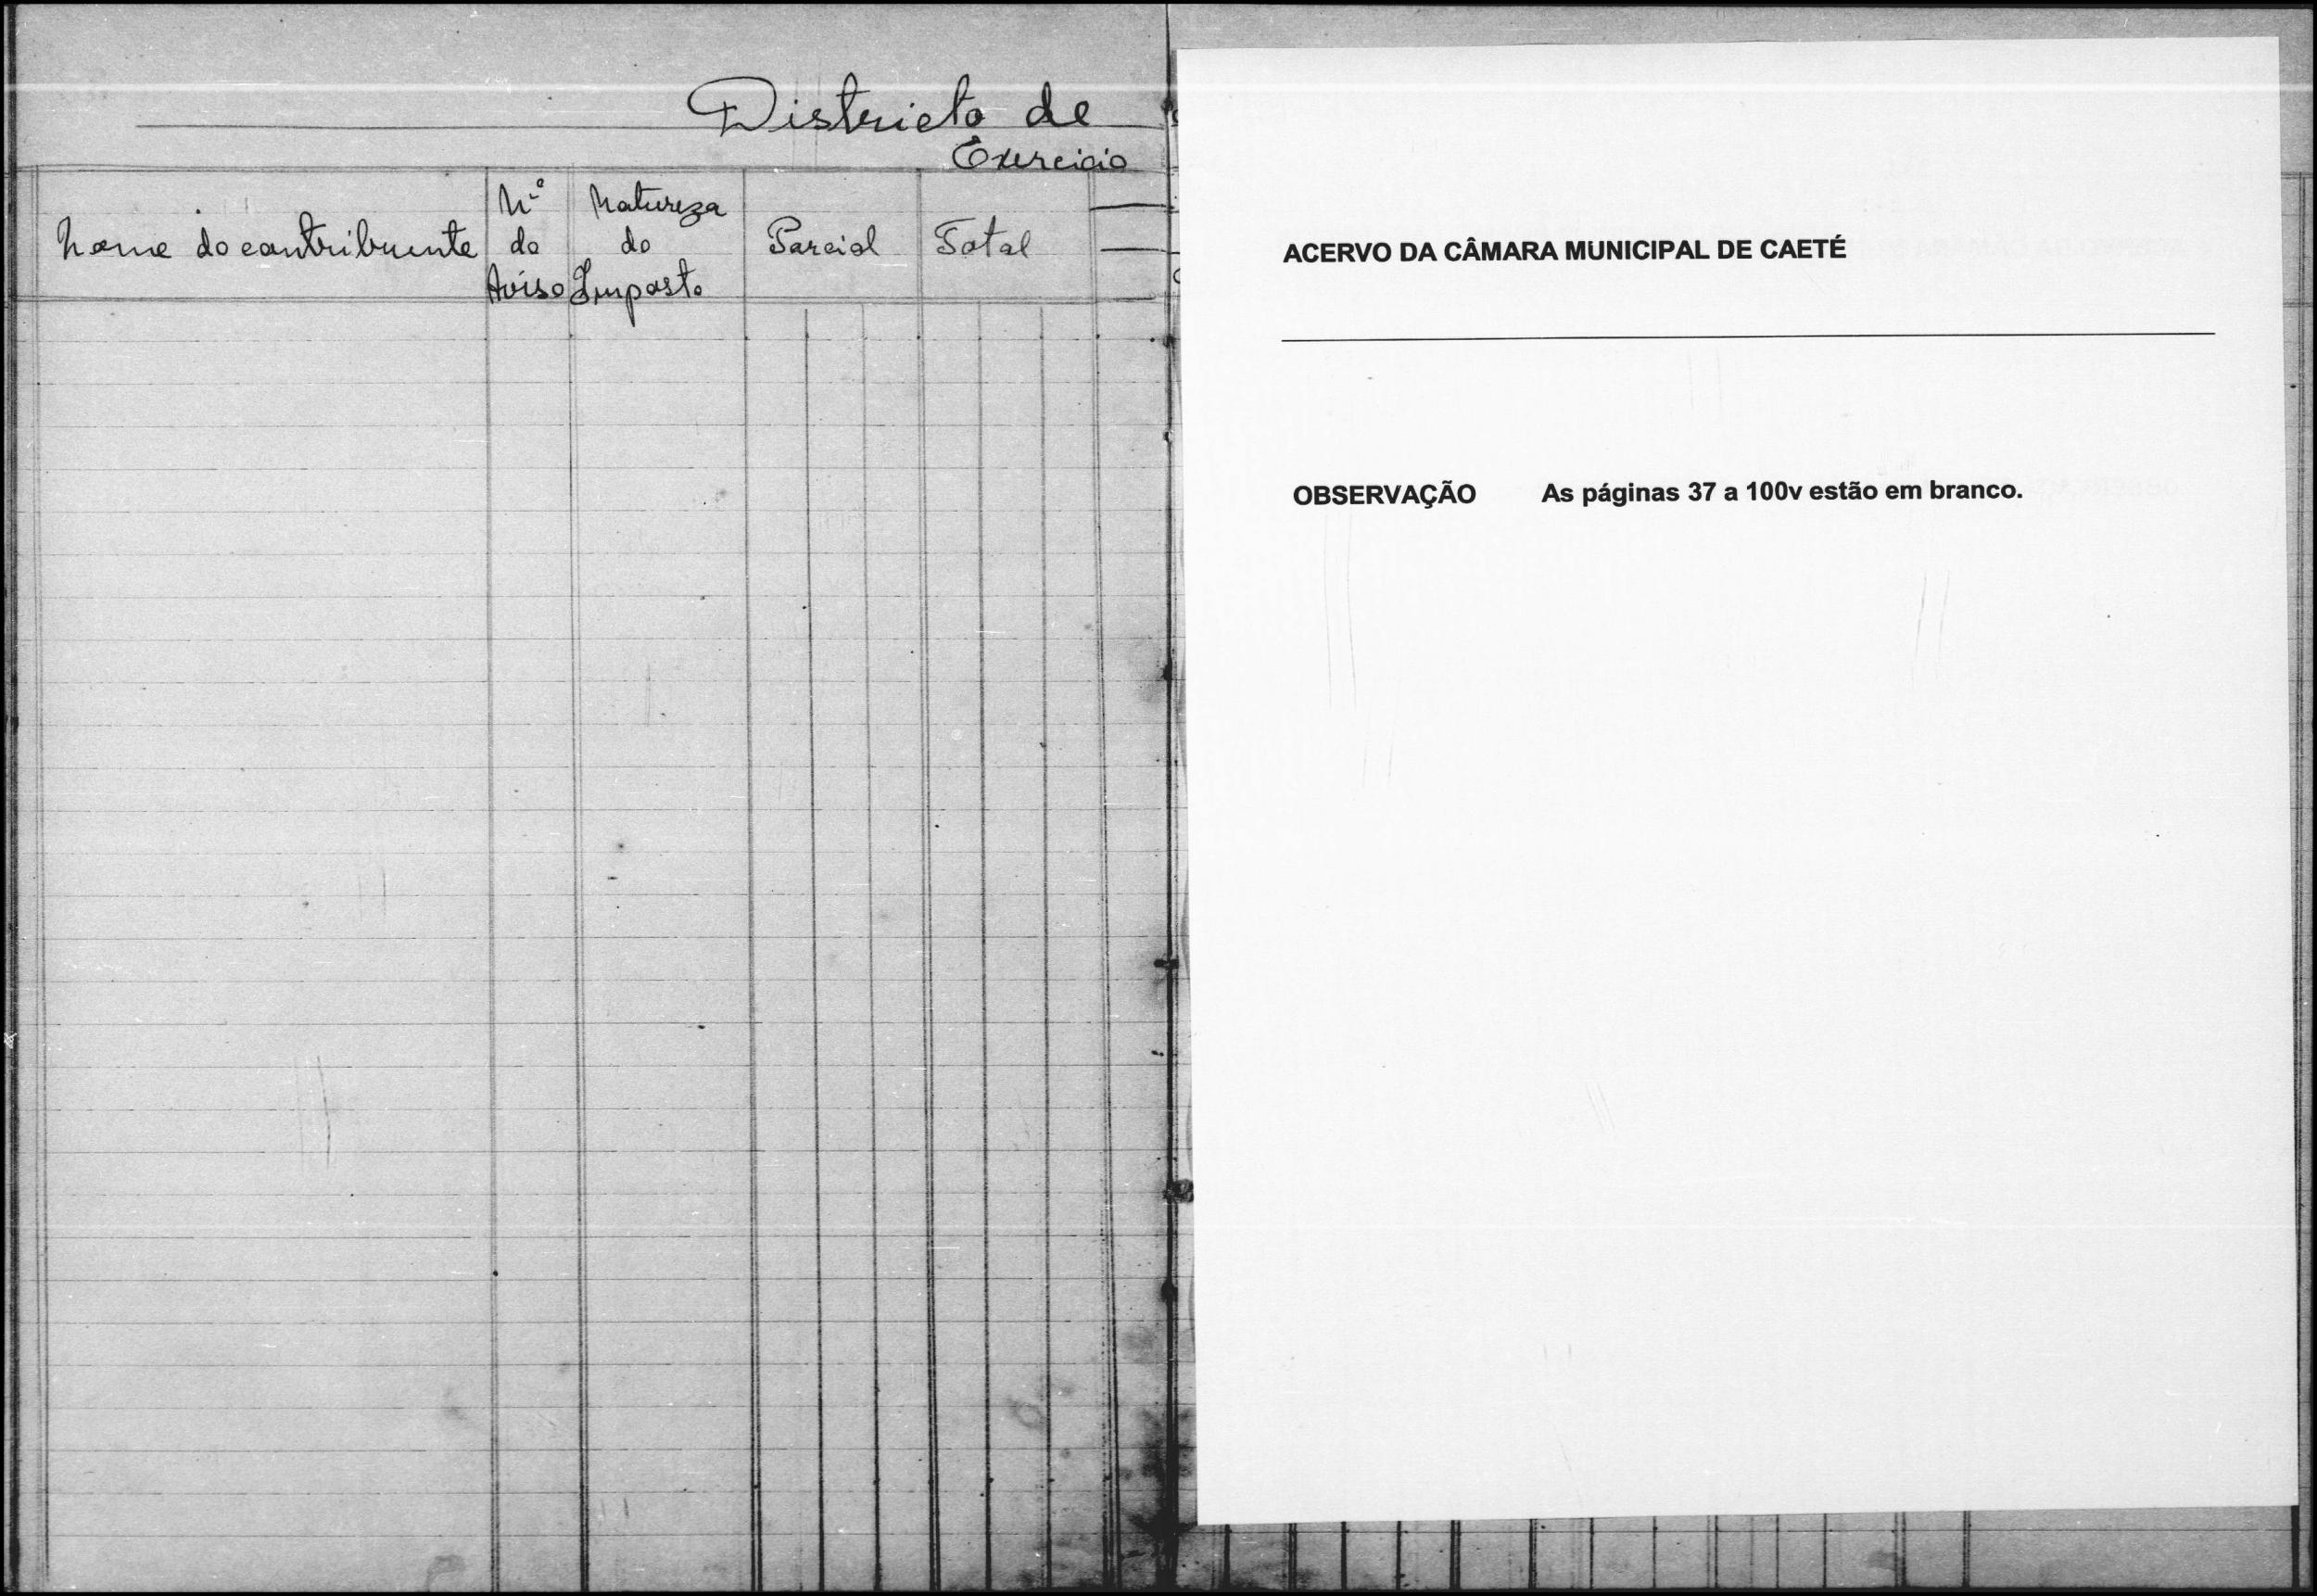 Districto de
Exercicio
Nome do contribuinte
Nº do Aviso
Natureza do Imposto
Parcial
Total
ACERVO DA CÂMARA MUNICIPAL DE CAETÉ
OBSERVAÇÃO As páginas 37 a 100v estão em branco.